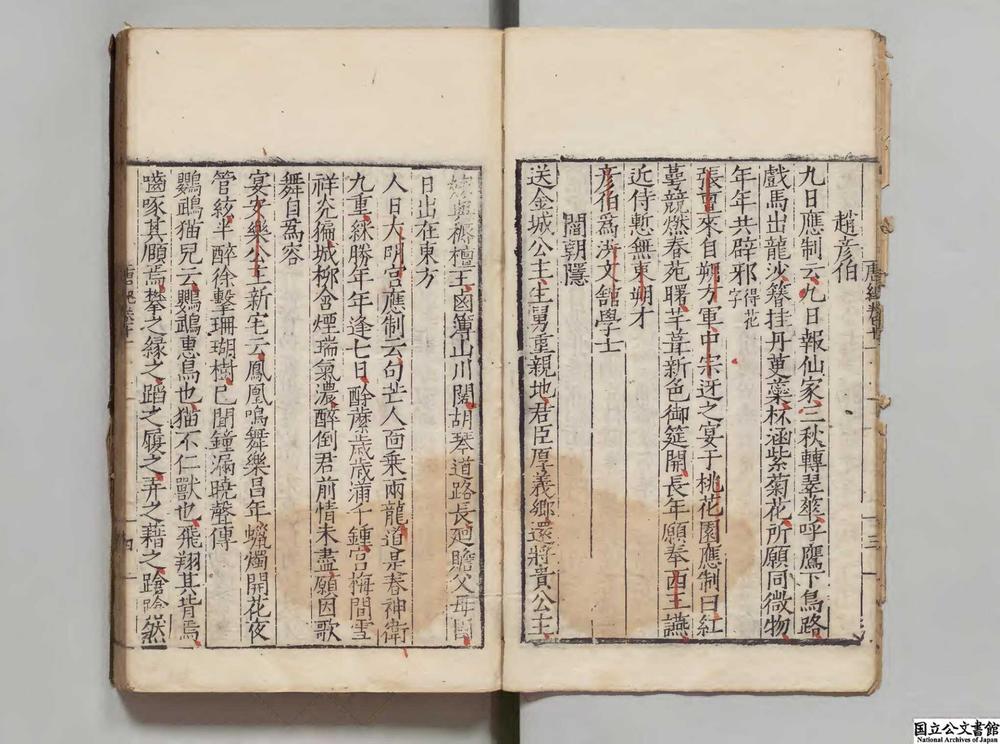 趙彥伯
九日應制云九日報仙家三秋轉翠華呼鷹下鳥路
戲馬出龍沙簪挂丹萸蘂杯涵紫菊花所願同微物
年年共辟邪得花字
張重來自朔方軍中宗迓之宴于桃花園應制曰紅
萼競燃春苑曙芊茸新色御筵開長年願奉西王讌
近侍慙無東朔才
彥伯爲脩文館學士
閻朝隱
送金城公主云甥舅重親地君臣厚義鄉還將貴公主
嫁與耨檀王鹵簿山川闊胡琴道路長廻瞻父母國
日出在東方
人日大明宮應制云句芒人面乘兩龍道是春神衛
九重綵勝年年逢七日酴醾歲歲滿千鍾宮梅間雪
祥光徧城柳含煙瑞氣濃醉倒君前情未盡願因歌
舞自爲容
宴安樂公主新宅云鳳凰鳴舞樂昌年蠟燭開花夜
管絃半醉徐擊珊瑚樹已聞鐘漏曉聲傳
鸚鵡猫兒云鸚鵡惠鳥也猫不仁獸也飛翔其背焉
齧啄其頤焉攀之緣之蹈之履之弄之藉之蹌蹌然
三
四
国立公文書館
National Archives of Japan